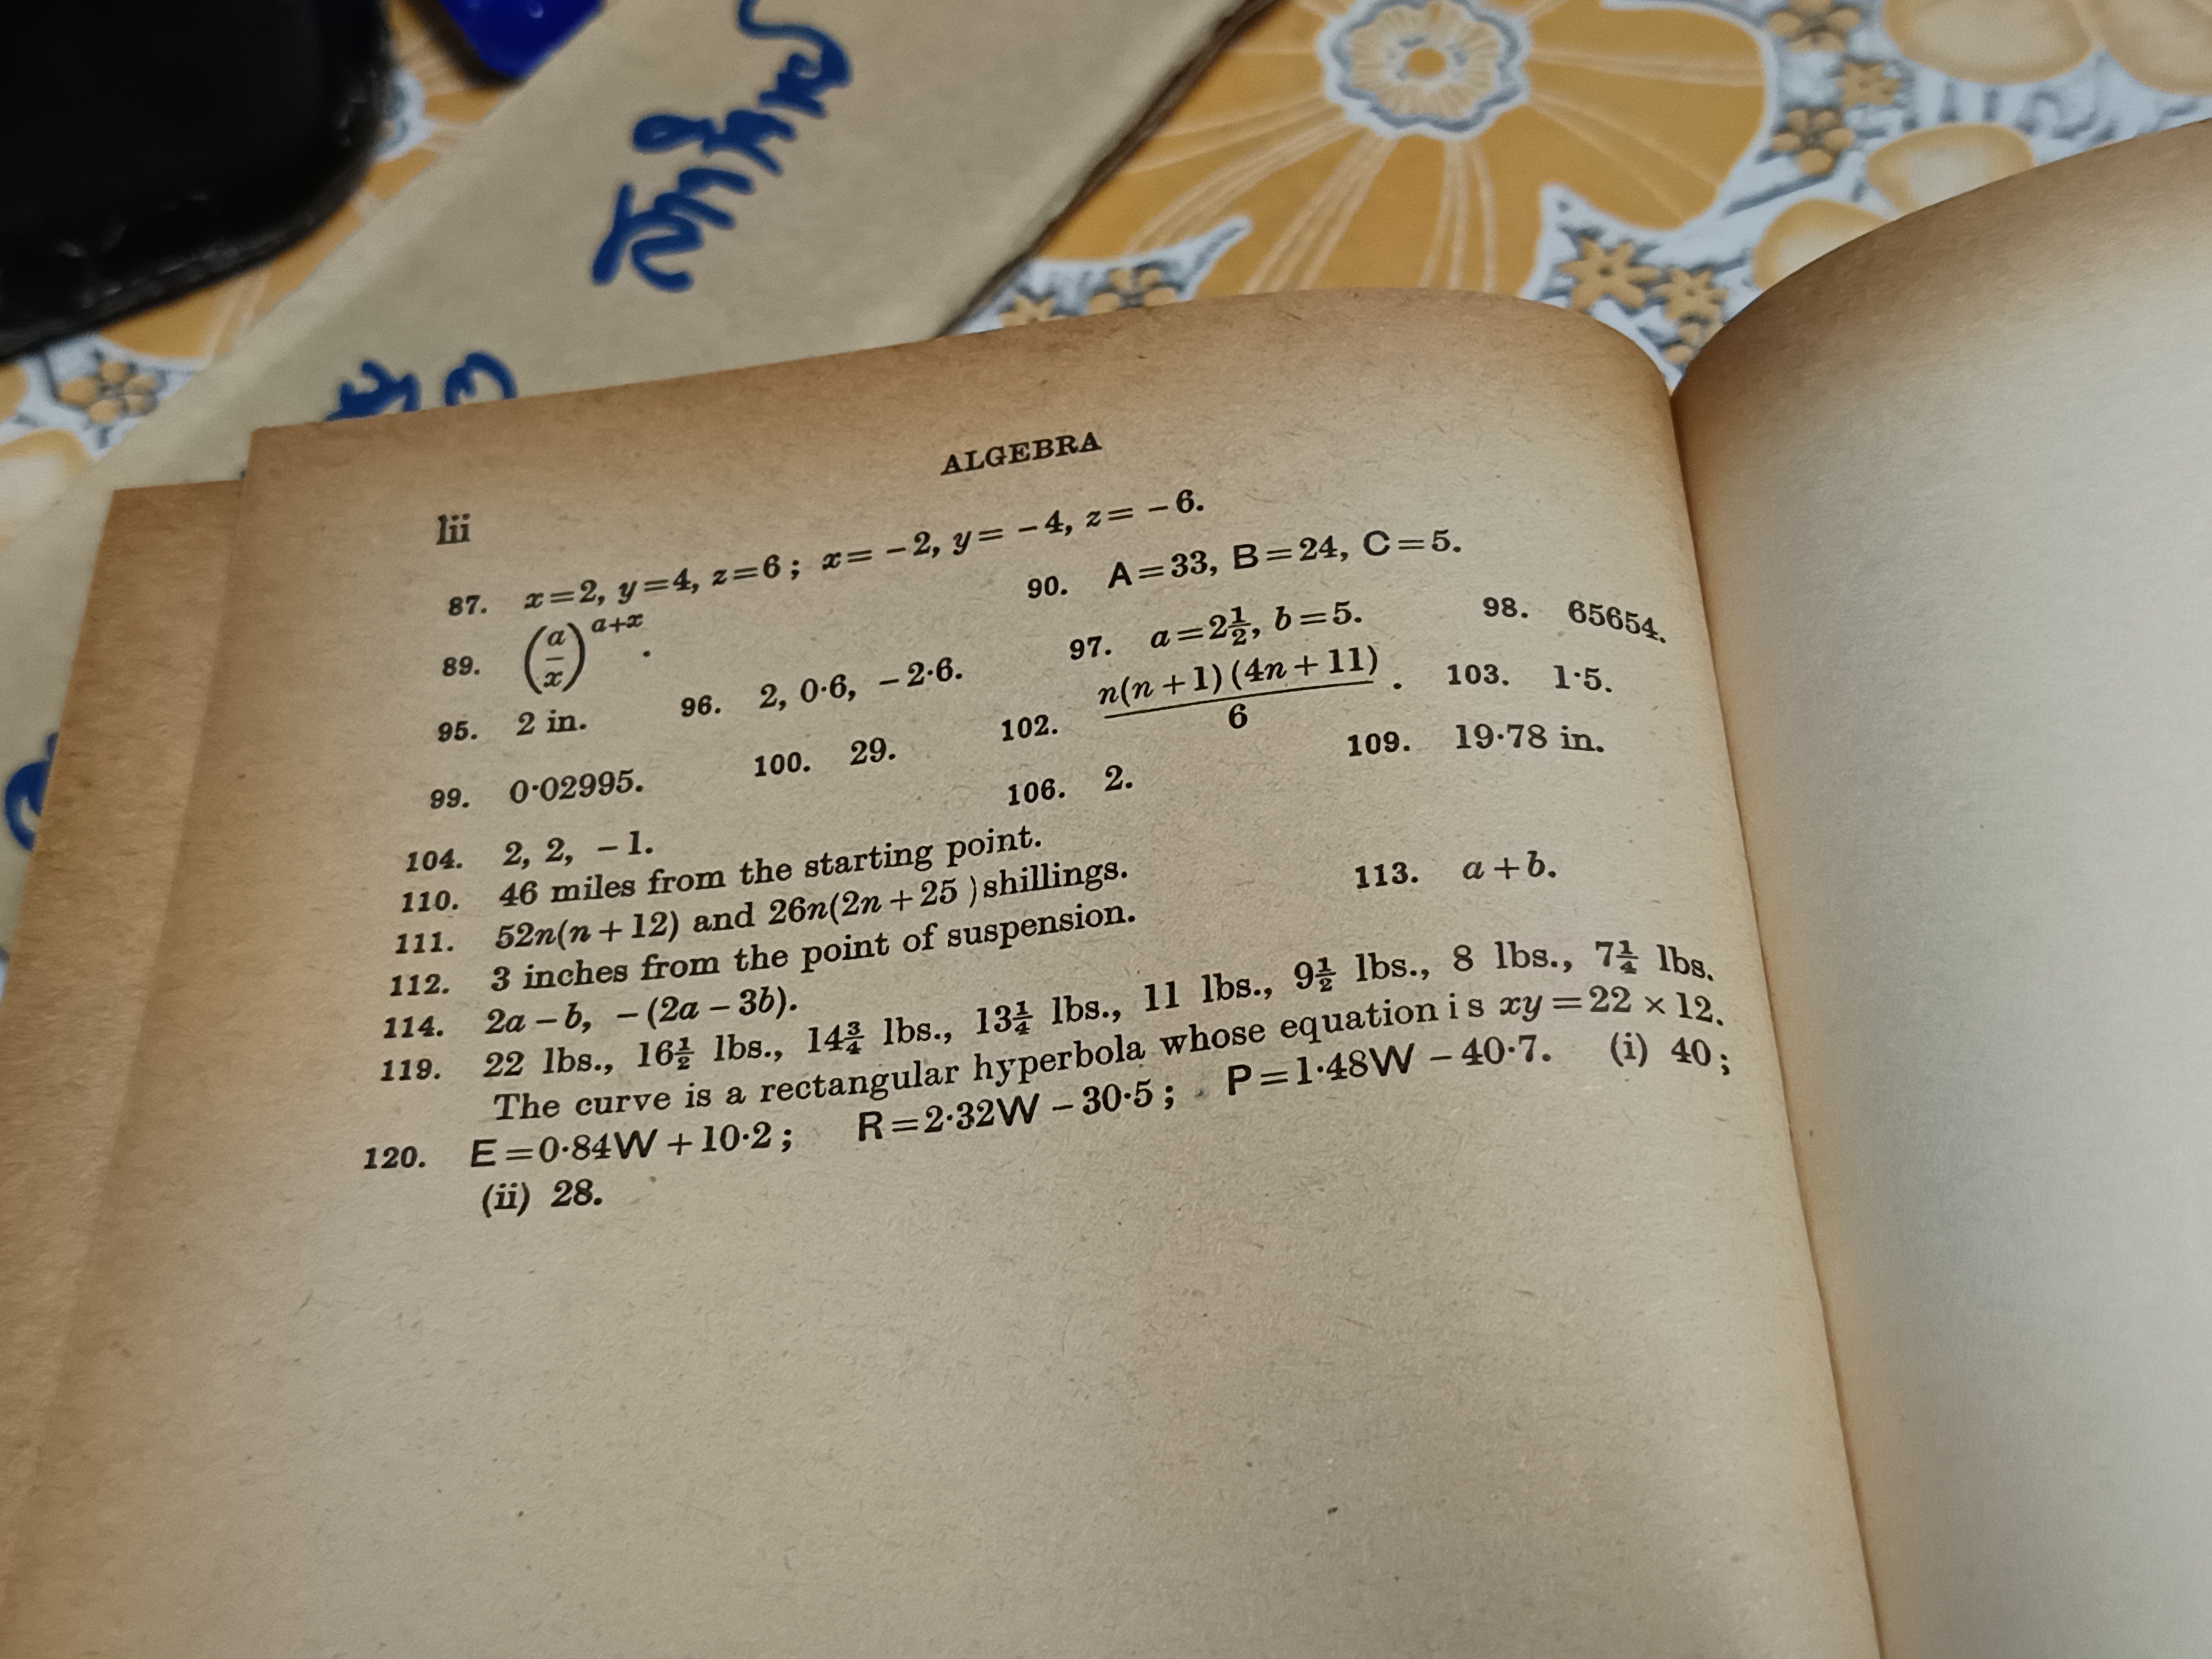 ALGEBRA
lii
87. x=2, y=4, z=6; x= -2, y= -4, z= -6.
89. (a/x)^(a+x). 90. A=33, B=24, C=5.
95. 2 in. 96. 2, 0·6, -2·6. 97. a=2½, b=5. 98. 65654.
99. 0·02995. 100. 29. 102. n(n+1)(4n+11)/6. 103. 1·5.
104. 2, 2, -1. 106. 2. 109. 19·78 in.
110. 46 miles from the starting point.
111. 52n(n+12) and 26n(2n+25) shillings.
112. 3 inches from the point of suspension. 113. a+b.
114. 2a-b, -(2a-3b).
119. 22 lbs., 16½ lbs., 14¾ lbs., 13¼ lbs., 11 lbs., 9½ lbs., 8 lbs., 7¼ lbs.
The curve is a rectangular hyperbola whose equation is xy=22×12.
120. E=0·84W+10·2; R=2·32W-30·5; P=1·48W-40·7. (i) 40;
(ii) 28.